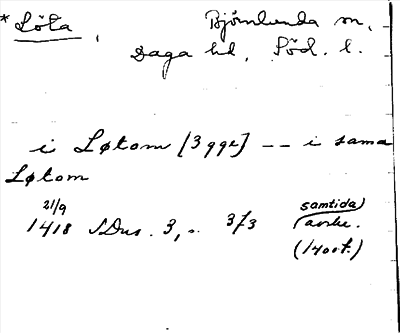 *Löta, Björnlunda sn,
Daga hd, Söd. l.
i Løtom [3 ggr] -- i sama
Løtom
21/9 1418 SDns. 3, s. 373 samtida avskr.
(1400t.)